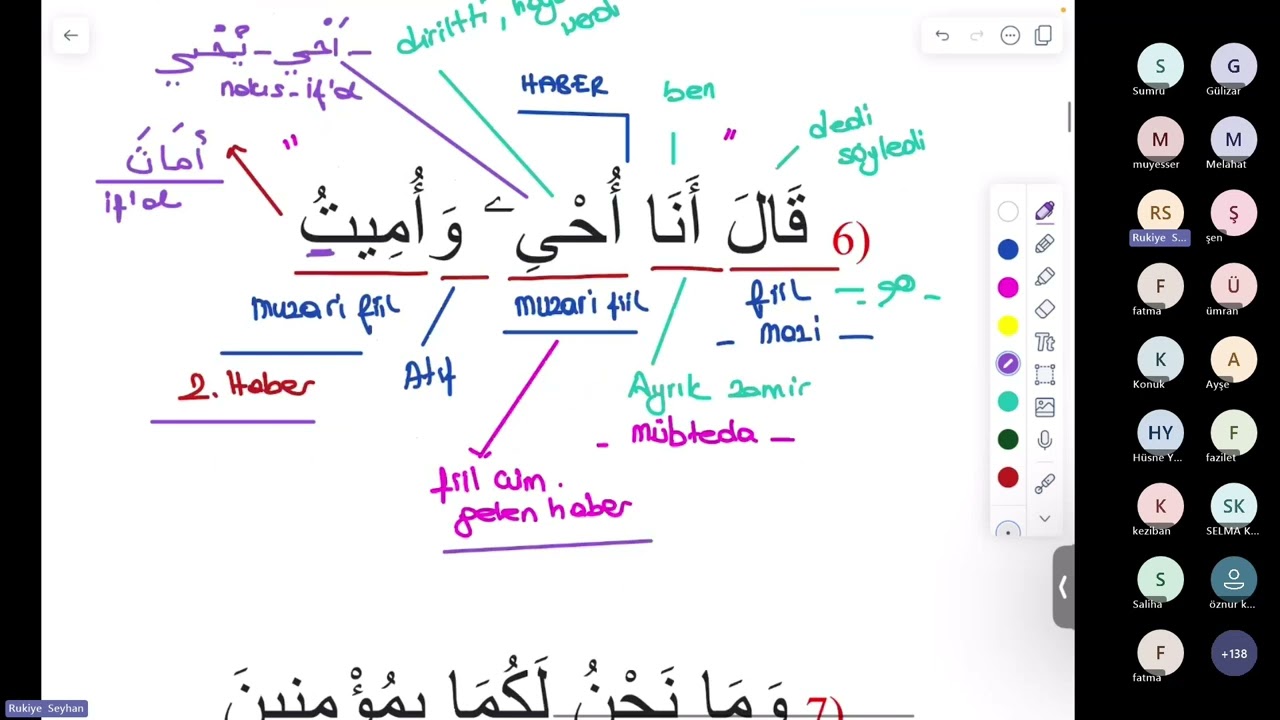 أَحْيَي - يُحْيِي -
nakıs - if'al
diriltti, hayat
verdi
HABER
ben
"
dedi
söyledi
أَمَاتَ
if'al
"
6) قَالَ أَنَا أُحْيِۦ وَأُمِيتُ
muzari fiil
muzari fiil
fiil
- mazi -
2. Haber
Atıf
Ayrık zamir
- mübteda -
fiil cüm.
gelen haber
7) وَمَا نَحْنُ لَكُمَا بِمُؤْمِنِينَ
Tt
S
Sumru
G
Gülizar
M
müyesser
M
Melahat
RS
Rukiye S...
Ş
şen
F
fatma
Ü
ümran
K
Konuk
A
Ayşe
HY
Hüsne Y...
F
fazilet
K
keziban
SK
SELMA K...
S
Saliha
öznur k...
F
fatma
+138
Rukiye Seyhan